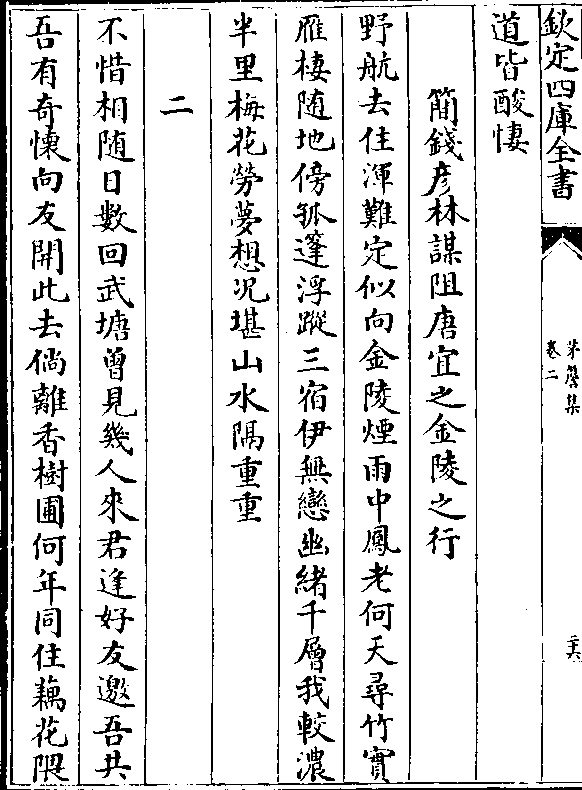 欽定四庫全書
茅簷集
卷二
二六
道皆酸悽
簡錢彦林謀阻唐宜之金陵之行
野航去住渾難定似向金陵煙雨中鳳老何天尋竹實
雁棲随地傍孤篷浮蹤三宿伊無戀幽緒千層我較濃
半里梅花勞夢想况堪山水隔重重
二
不惜相随日數回武塘曽見幾人來君逢好友邀吾共
吾有奇懐向友開此去倘離香樹圃何年同住藕花隈